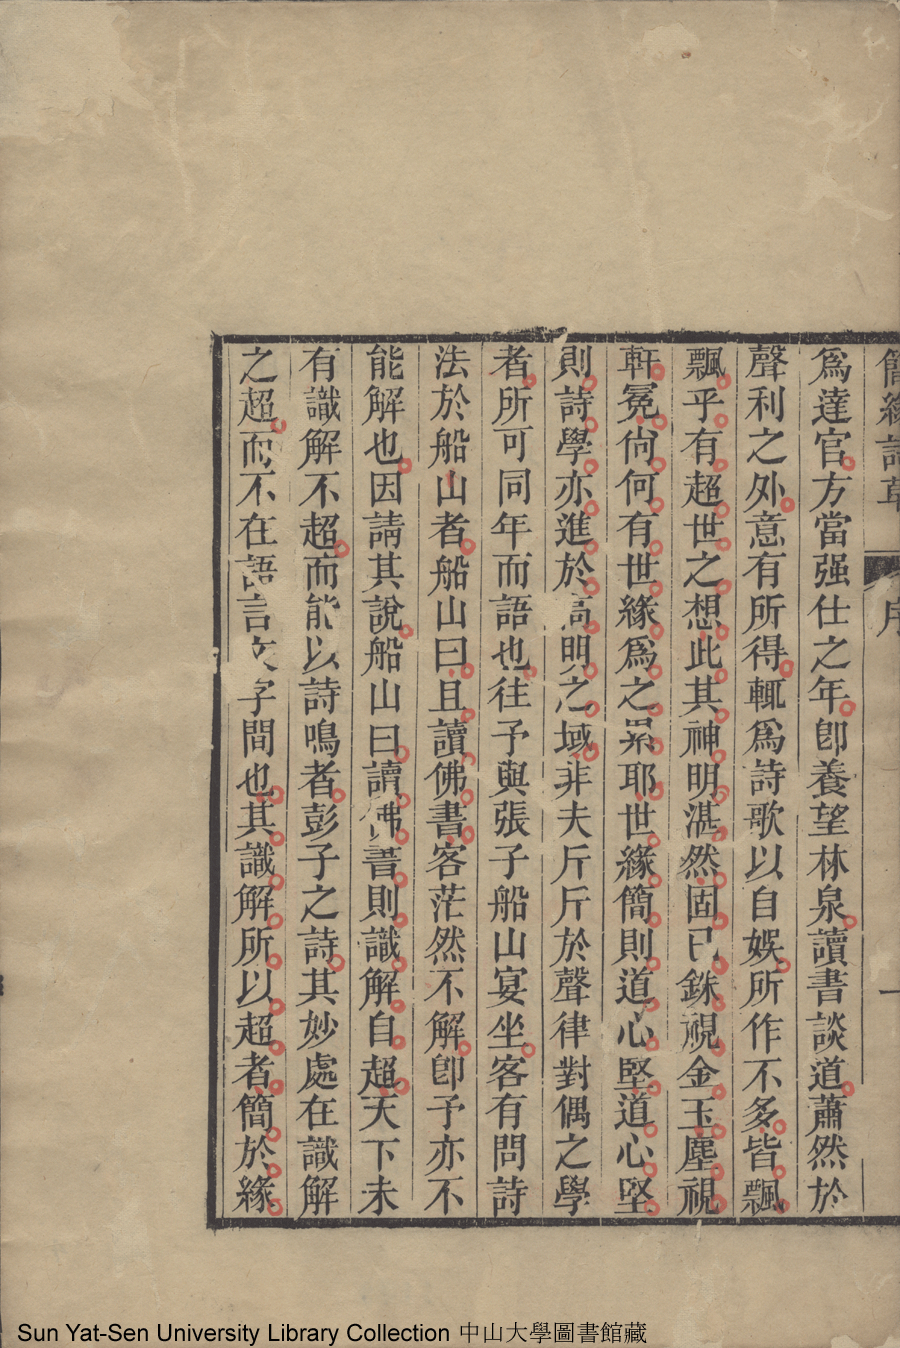 簡緣詩草
序
一
爲達官方當强仕之年卽養望林泉讀書談道蕭然於
聲利之外意有所得輒爲詩歌以自娛所作不多皆飄
飄乎有超世之想此其神明湛然固已銖視金玉塵視
軒冕尙何有世緣爲之累耶世緣簡則道心堅道心堅
則詩學亦進於高明之域非夫斤斤於聲律對偶之學
者所可同年而語也往予與張子船山宴坐客有問詩
法於船山者船山曰且讀佛書客茫然不解卽予亦不
能解也因請其說船山曰讀佛書則識解自超天下未
有識解不超而能以詩鳴者彭子之詩其妙處在識解
之超而不在語言文字間也其識解所以超者簡於緣
Sun Yat-Sen University Library Collection 中山大學圖書館藏